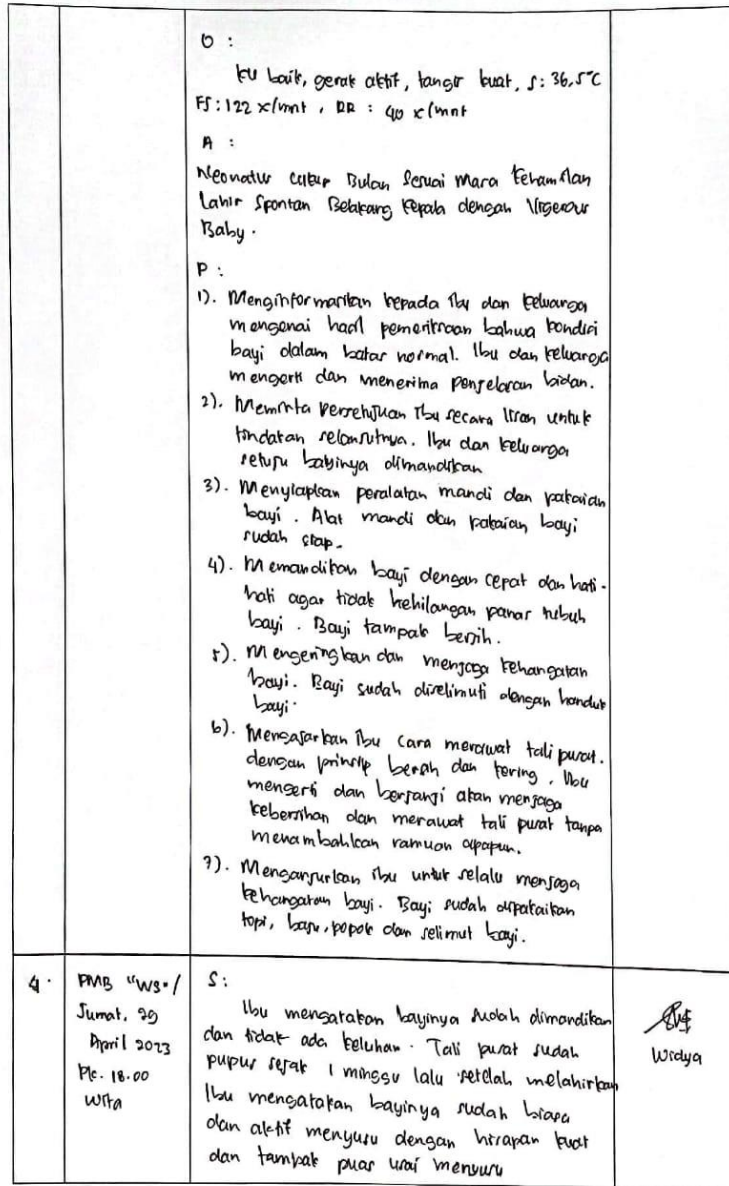 O :
KU baik, gerak aktif, tangis kuat, S: 36,5°C
FJ : 122 x/mnt , RR : 40 x/mnt
A :
Neonatus Cukup Bulan Sesuai Masa Kehamilan
Lahir Spontan Belakang Kepala dengan Vigerous
Baby.
P :
1). Menginformasikan kepada Ibu dan keluarga
mengenai hasil pemeriksaan bahwa kondisi
bayi dalam batas normal. Ibu dan keluarga
mengerti dan menerima penjelasan bidan.
2). Meminta persetujuan Ibu secara lisan untuk
tindakan selanjutnya. Ibu dan keluarga
setuju bayinya dimandikan
3). Menyiapkan peralatan mandi dan pakaian
bayi. Alat mandi dan pakaian bayi
sudah siap.
4). Memandikan bayi dengan cepat dan hati-
hati agar tidak kehilangan panas tubuh
bayi. Bayi tampak bersih.
5). Mengeringkan dan menjaga kehangatan
bayi. Bayi sudah diselimuti dengan handuk
bayi.
6). Mengajarkan Ibu cara merawat tali pusat.
dengan prinsip bersih dan kering. Ibu
mengerti dan berjanji akan menjaga
kebersihan dan merawat tali pusat tanpa
menambahkan ramuan apapun.
7). Menganjurkan ibu untuk selalu menjaga
kehangatan bayi. Bayi sudah dipakaikan
topi, baju, popok dan selimut bayi.
4. PMB "WS" /
Jumat, 29
April 2023
Pk. 18.00
Wita
S :
Ibu mengatakan bayinya sudah dimandikan
dan tidak ada keluhan. Tali pusat sudah
pupus sejak 1 minggu lalu setelah melahirkan
Ibu mengatakan bayinya sudah biasa
dan aktif menyusu dengan hisapan kuat
dan tampak puas usai menyusu
Widya